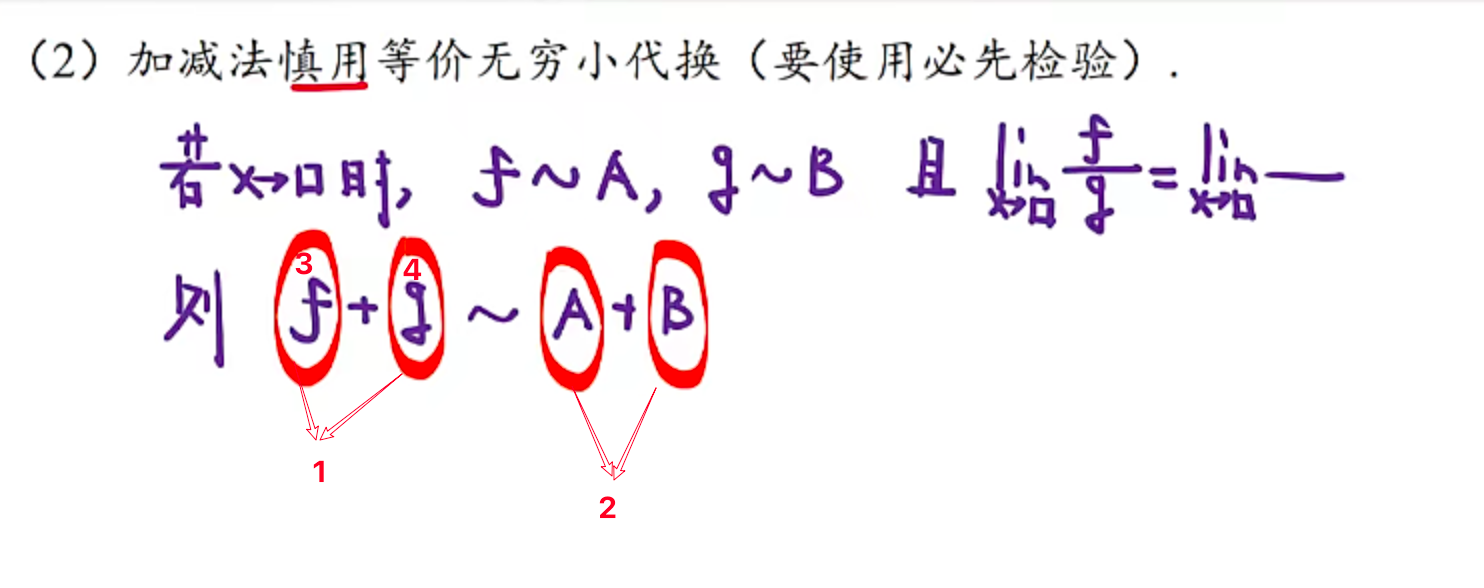 （2）加减法慎用等价无穷小代换（要使用必先检验）.
若x→口时, f~A, g~B 且 lim x→口 f/g = lim x→口 —
3 4
则 f+g ~ A+B
1
2